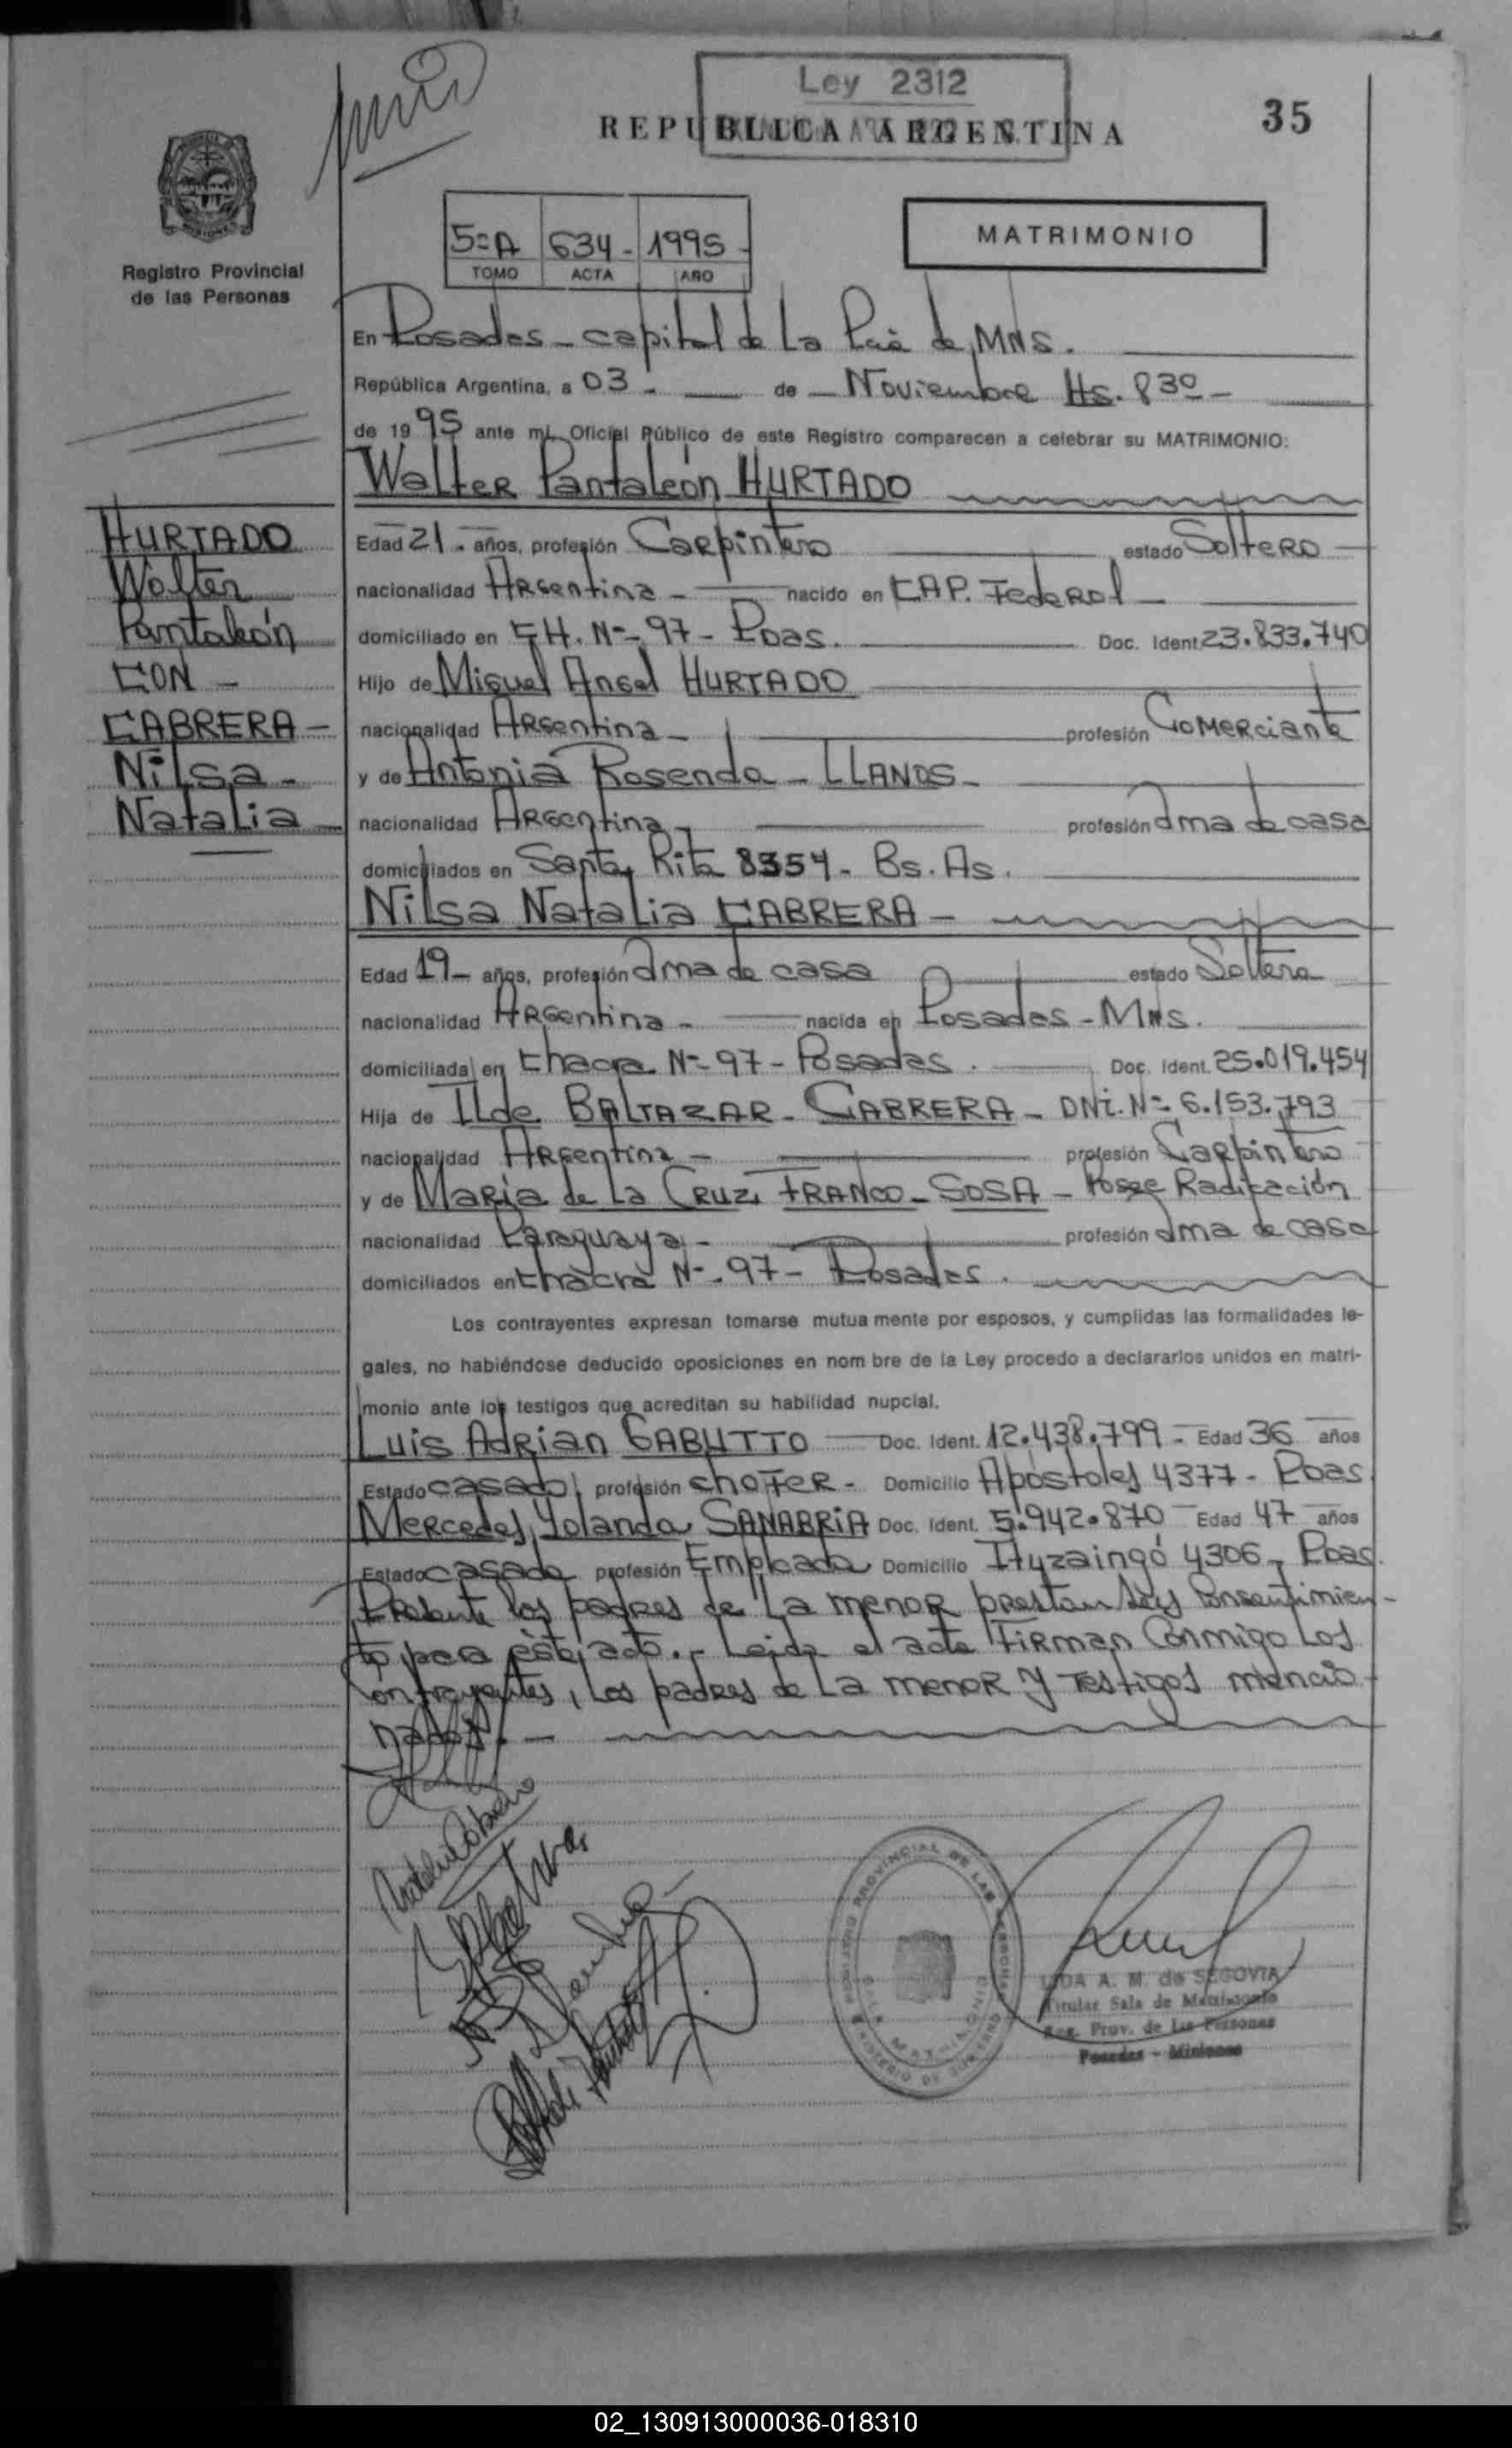 Ley 2312
REPUBLICA ARGENTINA
35
5=A 634- 1995-
TOMO ACTA AÑO
MATRIMONIO
Registro Provincial
de las Personas
En Posadas - capital de La Pcia de MNS.
República Argentina, a 03 - de - Noviembre Hs. 8 30 -
de 19 95 ante mí, Oficial Público de este Registro comparecen a celebrar su MATRIMONIO:
Walter Pantaleón HURTADO
HURTADO
Walter
Pantaleón
CON -
CABRERA -
Nilsa -
Natalia -
Edad 21 - años, profesión Carpintero estado Soltero
nacionalidad Argentina - nacido en CAP. Federal -
domiciliado en CH. Nº 97 - Pdas. Doc. Ident. 23.833.740
Hijo de Miguel Angel HURTADO
nacionalidad Argentina - profesión Comerciante
y de Antonia Rosenda - LLANOS -
nacionalidad Argentina - profesión ama de casa
domiciliados en Santa Rita 8354 - Bs. As.
Nilsa Natalia CABRERA -
Edad 19 - años, profesión ama de casa estado Soltera
nacionalidad Argentina - nacida en Posadas - MNS.
domiciliada en chacra Nº 97 - Posadas. Doc. Ident. 25.019.454
Hija de ILde BALTAZAR - CABRERA - DNi. Nº 6.153.793
nacionalidad Argentina - profesión Carpintero
y de María de La CRUZ, FRANCO - SOSA - Posee Radicación
nacionalidad Paraguaya - profesión ama de casa
domiciliados en chacra Nº 97 - Posadas.
Los contrayentes expresan tomarse mutua mente por esposos, y cumplidas las formalidades le-
gales, no habiéndose deducido oposiciones en nom bre de la Ley procedo a declararlos unidos en matri-
monio ante los testigos que acreditan su habilidad nupcial.
Luis Adrian GABUTTO Doc. Ident. 12.438.799 - Edad 36 años
Estado casado profesión chofer - Domicilio Apóstoles 4377 - Pdas.
Mercedes Yolanda SANABRIA Doc. Ident. 5.942.870 Edad 47 años
Estado casada profesión Empleada Domicilio Ituzaingó 4306 - Pdas.
Presente los padres de La menor prestan sus Consentimien-
to para este acto. - Leida el acta Firman Conmigo Los
Contrayentes, los padres de La menor y Testigos mencio-
nados. -
REGISTRO PROVINCIAL DE LAS PERSONAS
SALA MATRIMONIO
MINISTERIO DE GOBIERNO
A. M. de SEGOVIA
Titular Sala de Matrimonio
Reg. Prov. de las Personas
Posadas - Misiones
02_130913000036-018310